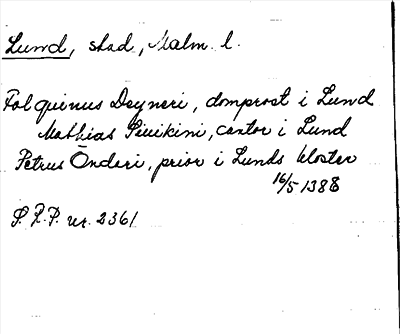 Lund, stad, Malm. l.
Folquinus Deyneri, domprost i Lund
Mathias Finikini, cantor i Lund
Petrus Öndari, prior i Lunds kloster
16/5 1388
S. R. P. nr. 2361